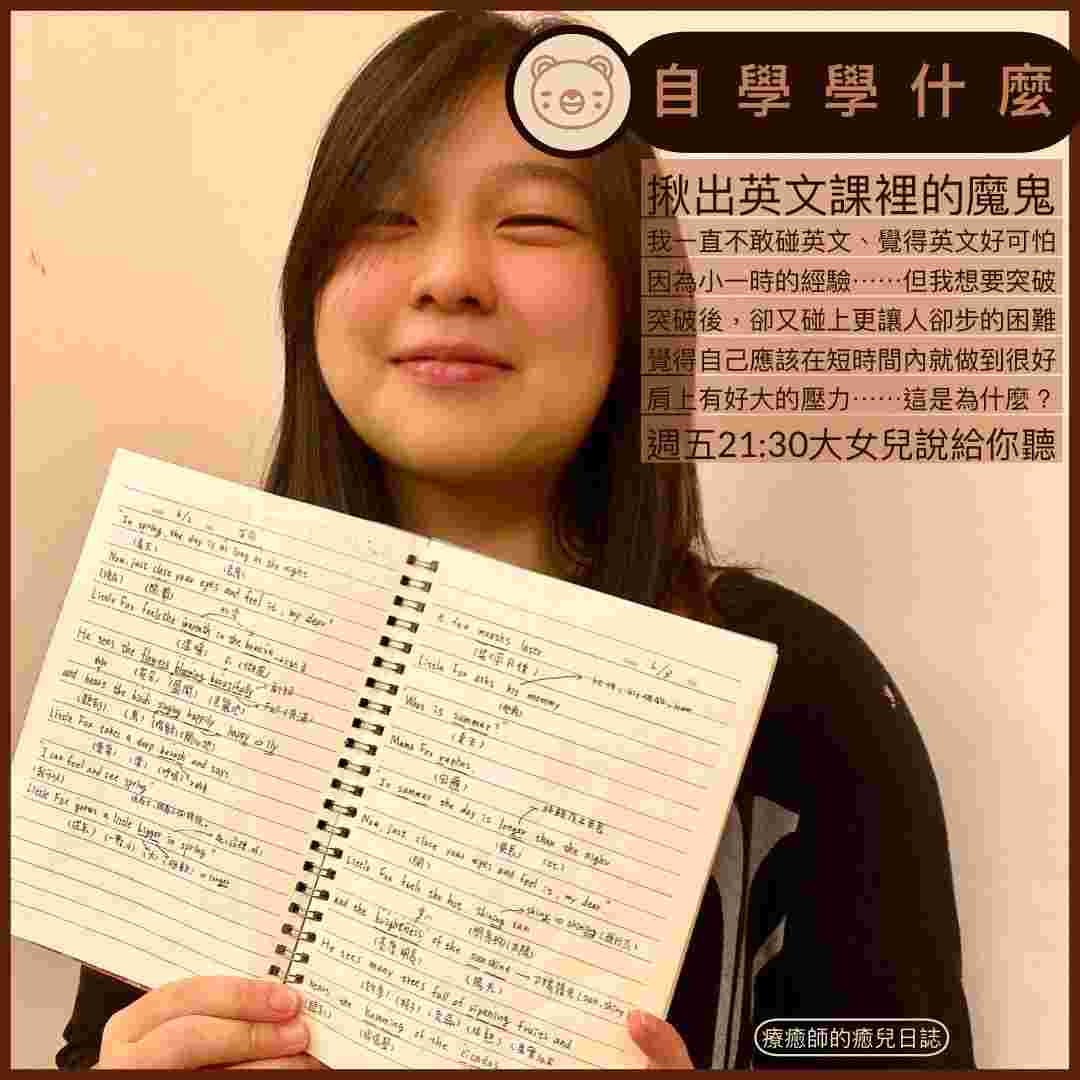 自學學什麼
揪出英文課裡的魔鬼
我一直不敢碰英文、覺得英文好可怕
因為小一時的經驗⋯⋯但我想要突破
突破後，卻又碰上更讓人卻步的困難
覺得自己應該在短時間內就做到很好
肩上有好大的壓力⋯⋯這是為什麼？
週五21:30大女兒說給你聽
In spring, the day is as long as the night
(春天)
Now, just close your eyes and feel it, my dear"
Little Fox feels the warmth in the
(溫暖)
He sees the flowers blooming beautifully
(花朵) (盛開)
and hears the birds singing happily
(鳥)
Little Fox takes a deep breath and says
(深) (呼吸)
I can feel and see spring"
Little Fox grows a little bigger in spring"
(成長)
A few months later
6/9
Little Fox asks his mommy
What is summer?"
(夏天)
Mama Fox replies
(回應)
In summer the day is longer than the night
Now, just close your eyes and feel it, my dear"
Little Fox feels the hot, shining sun
and the brightness of the sunshine
He sees many trees full of ripening fruits and
hears the humming of the cicadas
療癒師的癒兒日誌